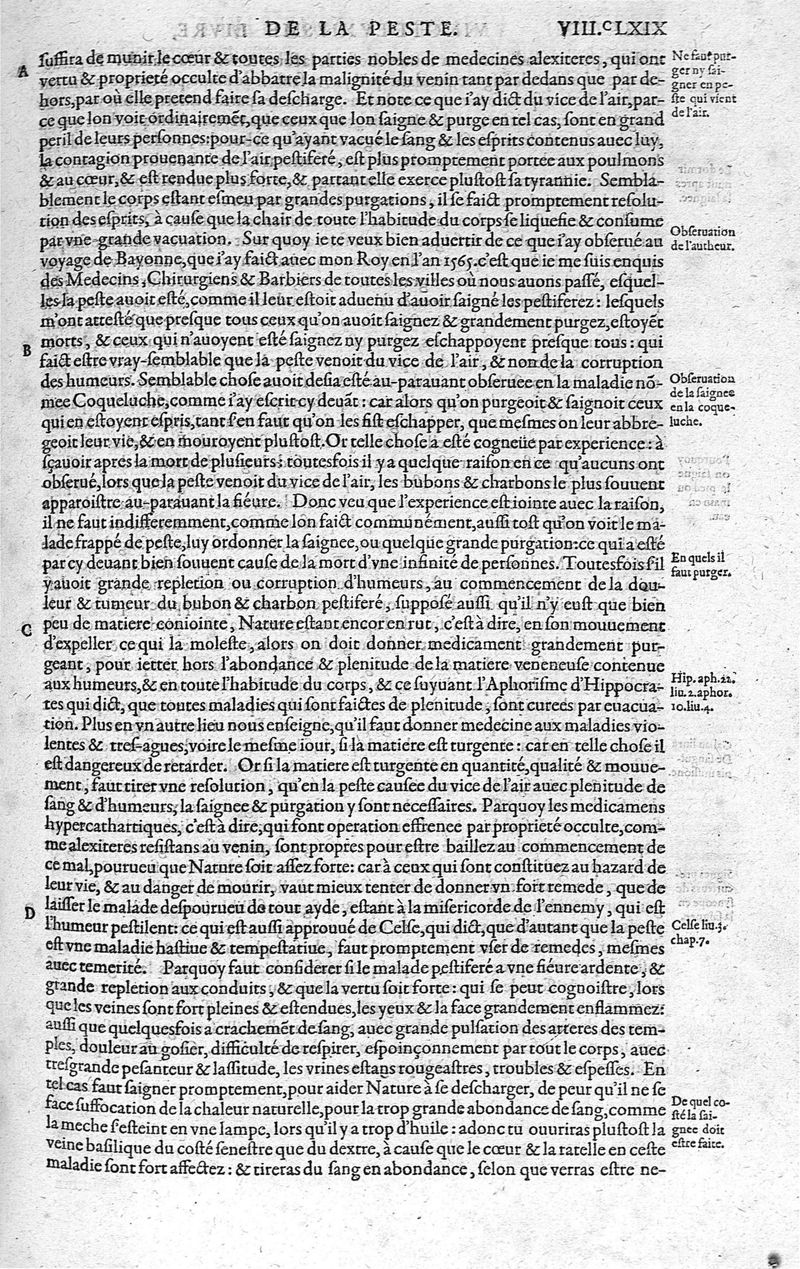 DE LA PESTE. VIII.ᶜLXIX
ſuffira de munir le cœur & toutes les parties nobles de medecines alexiteres, qui ont
A vertu & proprieté occulte d'abbatre la malignité du venin tant par dedans que par de-
hors, par où elle pretend faire ſa deſcharge. Et note ce que i'ay dict du vice de l'air, par-
ce que lon voit ordinairemẽt, que ceux que lon ſaigne & purge en tel cas, ſont en grand
peril de leurs perſonnes: pour-ce qu'ayant vacué le ſang & les eſprits contenus auec luy,
la contagion prouenante de l'air peſtiferé, eſt plus promptement portée aux poulmons
& au cœur, & eſt rendue plus forte, & partant elle exerce pluſtoſt ſa tyrannie. Sembla-
blement le corps eſtant eſmeu par grandes purgations, il ſe faict promptement reſolu-
tion des eſprits, à cauſe que la chair de toute l'habitude du corps ſe liquefie & conſume
par vne grande vacuation. Sur quoy ie te veux bien aduertir de ce que i'ay obſerué au
voyage de Bayonne, que i'ay faict auec mon Roy en l'an 1565. c'eſt que ie me ſuis enquis
des Medecins, Chirurgiens & Barbiers de toutes les villes où nous auons paſſé, eſquel-
les la peſte auoit eſté, comme il leur eſtoit aduenu d'auoir ſaigné les peſtiferez: leſquels
m'ont atteſté que preſque tous ceux qu'on auoit ſaignez & grandement purgez, eſtoyẽt
B morts, & ceux qui n'auoyent eſté ſaignez ny purgez eſchappoyent preſque tous: qui
faict eſtre vray-ſemblable que la peſte venoit du vice de l'air, & non de la corruption
des humeurs. Semblable choſe auoit deſia eſté au-parauant obſeruée en la maladie nõ-
mee Coqueluche, comme i'ay eſcrit cy deuãt: car alors qu'on purgeoit & ſaignoit ceux
qui en eſtoyent eſpris, tant ſ'en faut qu'on les fiſt eſchapper, que meſmes on leur abbre-
geoit leur vie, & en mouroyent pluſtoſt. Or telle choſe a eſté cogneüe par experience: à
ſçauoir apres la mort de pluſieurs: toutesfois il y a quelque raiſon en ce qu'aucuns ont
obſerué, lors que la peſte venoit du vice de l'air, les bubons & charbons le plus ſouuent
apparoiſtre au-parauant la fiéure. Donc veu que l'experience eſt iointe auec la raiſon,
il ne faut indifferemment, comme lon faict communément, auſſi toſt qu'on voit le ma-
lade frappé de peſte, luy ordonner la ſaignee, ou quelque grande purgation: ce qui a eſté
par cy deuant bien ſouuent cauſe de la mort d'vne infinité de perſonnes. Toutesfois ſ'il
y auoit grande repletion ou corruption d'humeurs, au commencement de la dou-
leur & tumeur du bubon & charbon peſtiferé, ſuppoſé auſſi qu'il n'y euſt que bien
C peu de matiere coniointe, Nature eſtant encor en rut, c'eſt à dire, en ſon mouuement
d'expeller ce qui la moleſte, alors on doit donner medicament grandement pur-
geant, pour ietter hors l'abondance & plenitude de la matiere veneneuſe contenue
aux humeurs, & en toute l'habitude du corps, & ce ſuyuant l'Aphoriſme d'Hippocra-
tes qui dict, que toutes maladies qui ſont faictes de plenitude, ſont curees par euacua-
tion. Plus en vn autre lieu nous enſeigne, qu'il faut donner medecine aux maladies vio-
lentes & treſ-agues, voire le meſme iour, ſi la matiere eſt turgente: car en telle choſe il
eſt dangereux de retarder. Or ſi la matiere eſt turgente en quantité, qualité & mouue-
ment, faut tirer vne reſolution, qu'en la peſte cauſee du vice de l'air auec plenitude de
ſang & d'humeurs, la ſaignee & purgation y ſont neceſſaires. Parquoy les medicamens
hypercathartiques, c'eſt à dire, qui font operation effrenee par proprieté occulte, com-
me alexiteres reſiſtans au venin, ſont propres pour eſtre baillez au commencement de
ce mal, pourueu que Nature ſoit aſſez forte: car à ceux qui ſont conſtituez au hazard de
leur vie, & au danger de mourir, vaut mieux tenter de donner vn fort remede, que de
D laiſſer le malade deſpourueu de tout ayde, eſtant à la miſericorde de l'ennemy, qui eſt
l'humeur peſtilent: ce qui eſt auſſi approuué de Celſe, qui dict, que d'autant que la peſte
eſt vne maladie haſtiue & tempeſtatiue, faut promptement vſer de remedes, meſmes
auec temerité. Parquoy faut conſiderer ſi le malade peſtiferé a vne fiéure ardente, &
grande repletion aux conduits, & que la vertu ſoit forte: qui ſe peut cognoiſtre, lors
que les veines ſont fort pleines & eſtendues, les yeux & la face grandement enflammez:
auſſi que quelquesfois a crachemẽt de ſang, auec grande pulſation des arteres des tem-
ples, douleur au goſier, difficulté de reſpirer, eſpoinçonnement par tout le corps, auec
treſgrande peſanteur & laſſitude, les vrines eſtans rougeaſtres, troubles & eſpeſſes. En
tel cas faut ſaigner promptement, pour aider Nature à ſe deſcharger, de peur qu'il ne ſe
face ſuffocation de la chaleur naturelle, pour la trop grande abondance de ſang, comme
la meche ſ'eſteint en vne lampe, lors qu'il y a trop d'huile: adonc tu ouuriras pluſtoſt la
veine baſilique du coſté ſeneſtre que du dextre, à cauſe que le cœur & la ratelle en ceſte
maladie ſont fort affectez: & tireras du ſang en abondance, ſelon que verras eſtre ne-
Ne faut pur-
ger ny ſai-
gner en pe-
ſte qui vient
de l'air.
Obſeruation
de l'autheur.
Obſeruation
de la ſaignee
en la coque-
luche.
En quels il
faut purger.
Hip. aph. 22.
liu. 2. aphor.
10. liu. 4.
Celſe liu. 3.
chap. 7.
De quel co-
ſté la ſai-
gnee doit
eſtre faite.